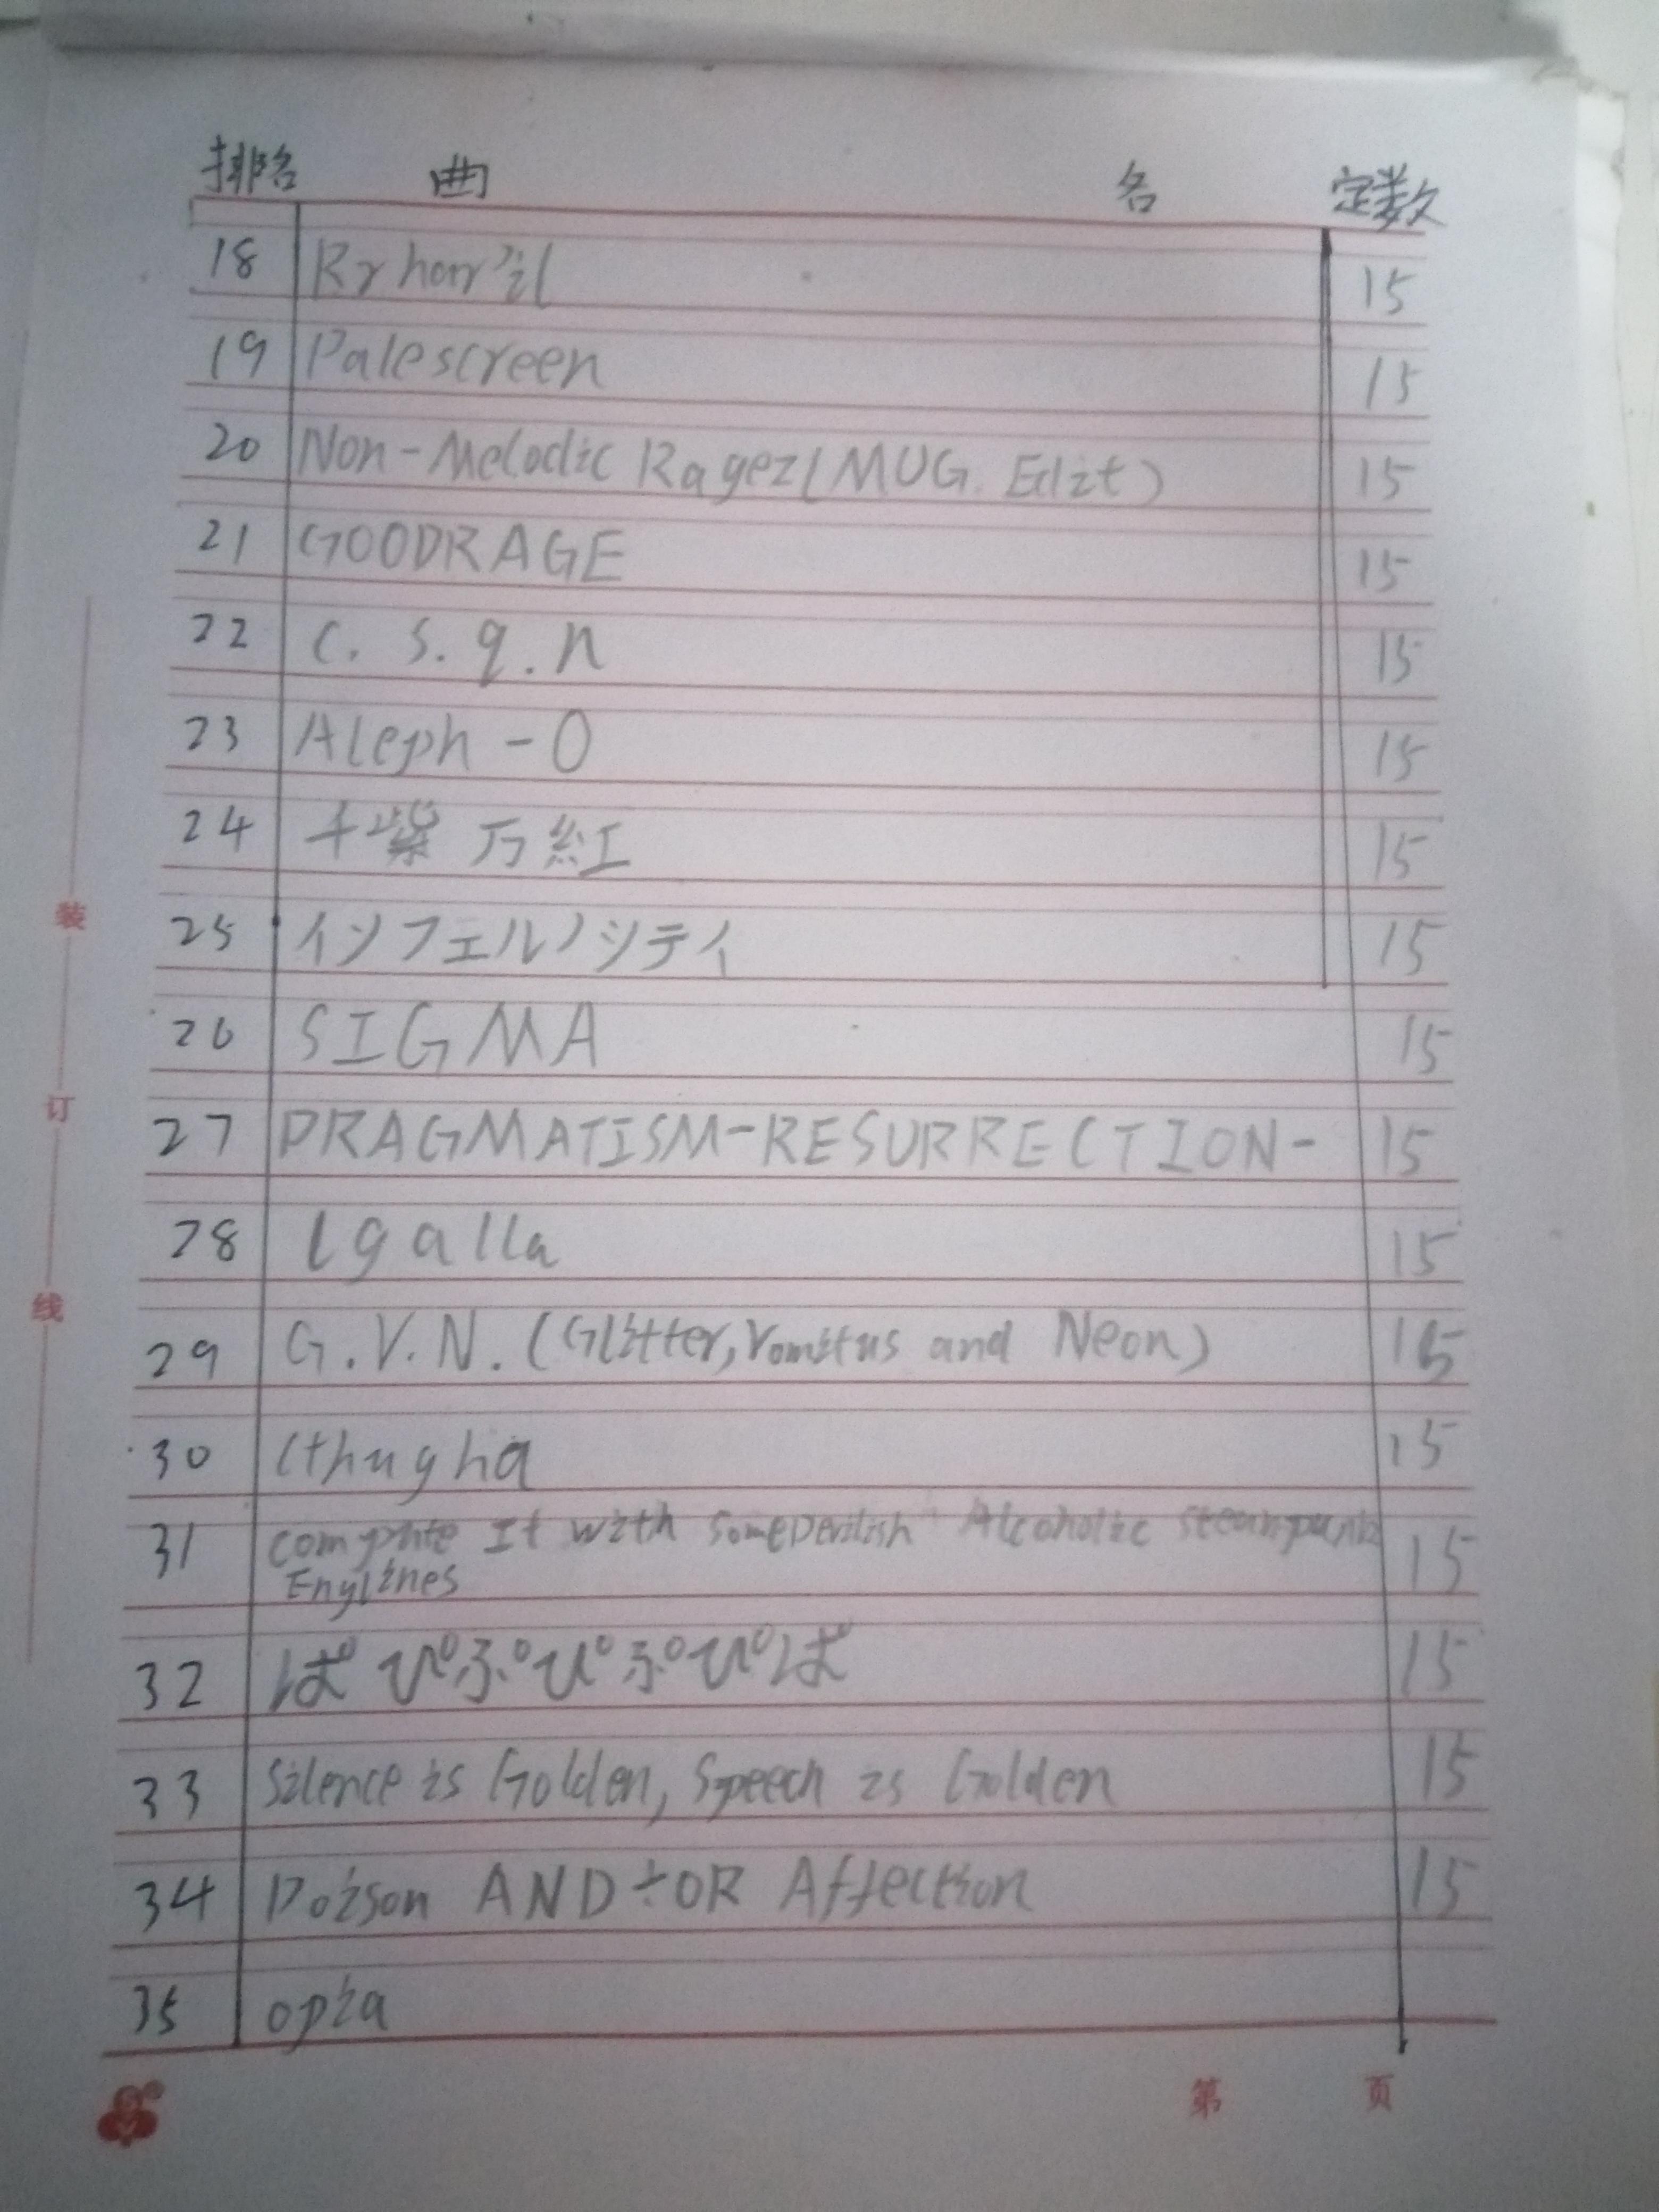 排名 曲 名 定数
18 Rrhar'il 15
19 Palescreen 15
20 Non-Melodic Ragez(MUG.Edit) 15
21 GOODRAGE 15
22 c.s.q.n 15
23 Aleph-0 15
24 千紫万紅 15
25 インフェルノシティ 15
26 SIGMA 15
27 PRAGMATISM-RESURRECTION- 15
28 lgalla 15
29 G.V.N.(Glitter,Vomitus and Neon) 15
30 Cthugha 15
31 compnte It with Some Devilish Alcoholic Steampunk 15
Engines
32 ぱぴぷぴぷぴぱ 15
33 Silence is Golden, Speech is Golden 15
34 Poison AND÷OR Affection 15
35 opia
装
订
线
第 页